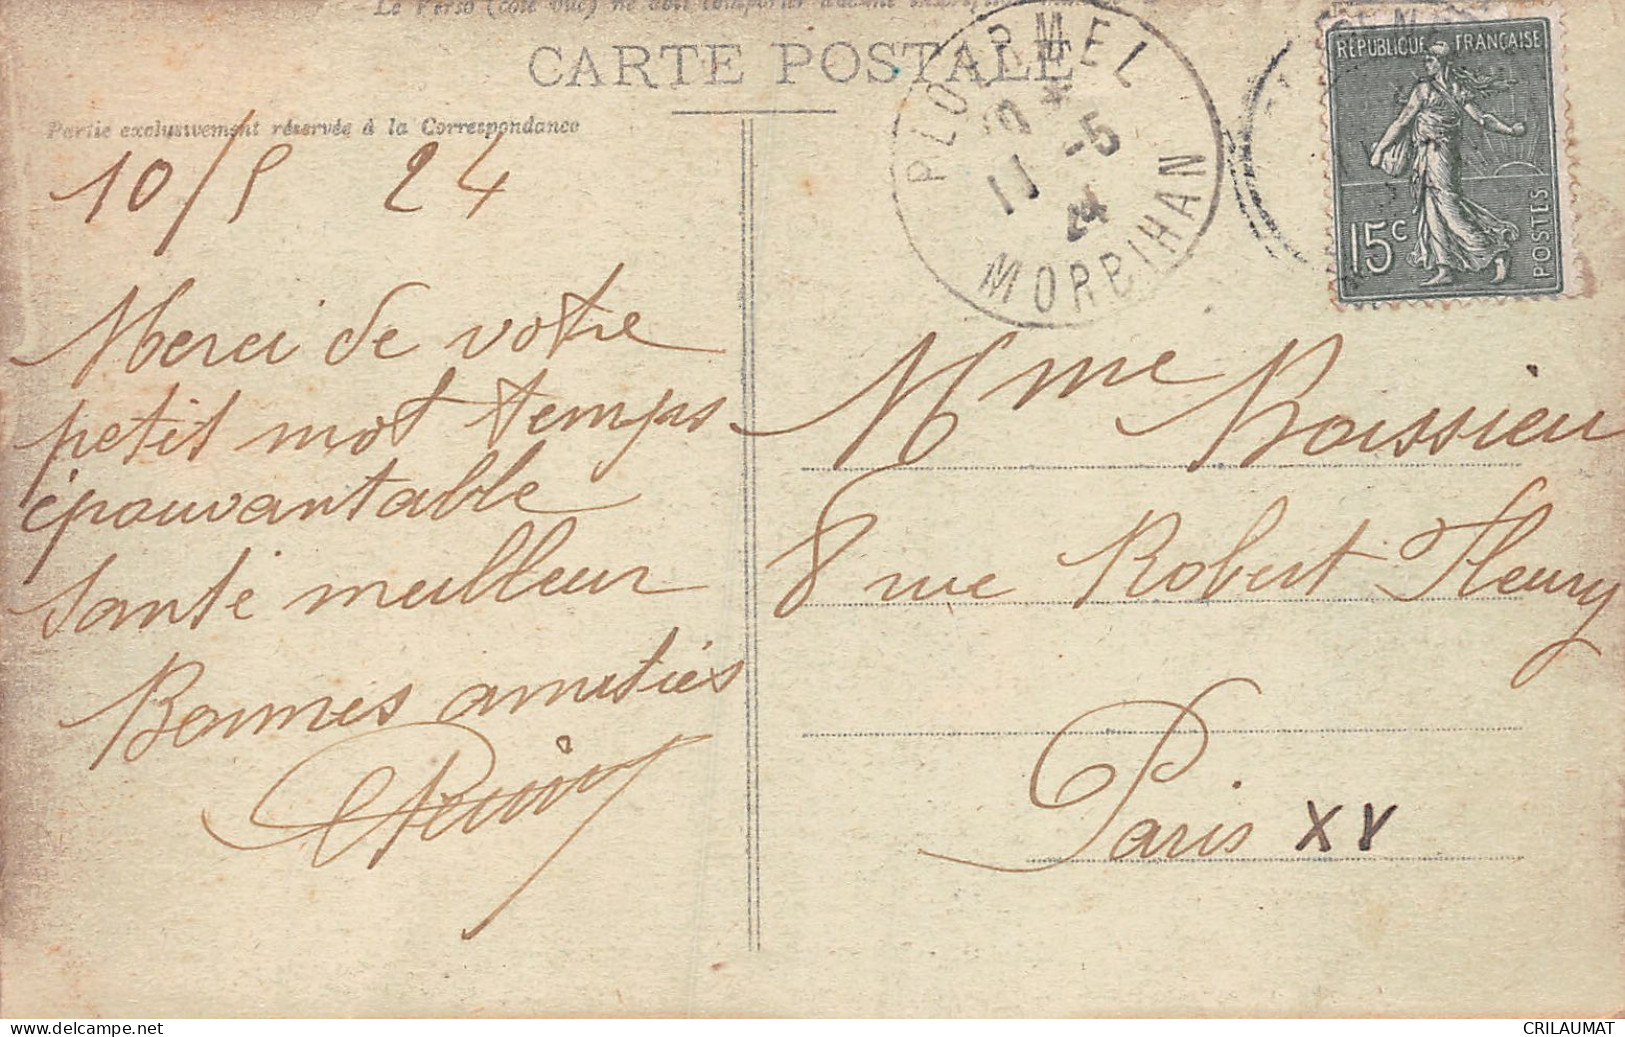 CARTE POSTALE
Partie exclusivement réservée à la Correspondance
10/5 24
Merci de votre
petit mot temps
épouvantable
santé meilleur
Bonnes amitiés
PLOERMEL
10 *
11 -5
24
MORBIHAN
REPUBLIQUE FRANÇAISE
15c
POSTES
Mme Boissieu
8 rue Robert Fleury
Paris XV
www.delcampe.net
CRILAUMAT